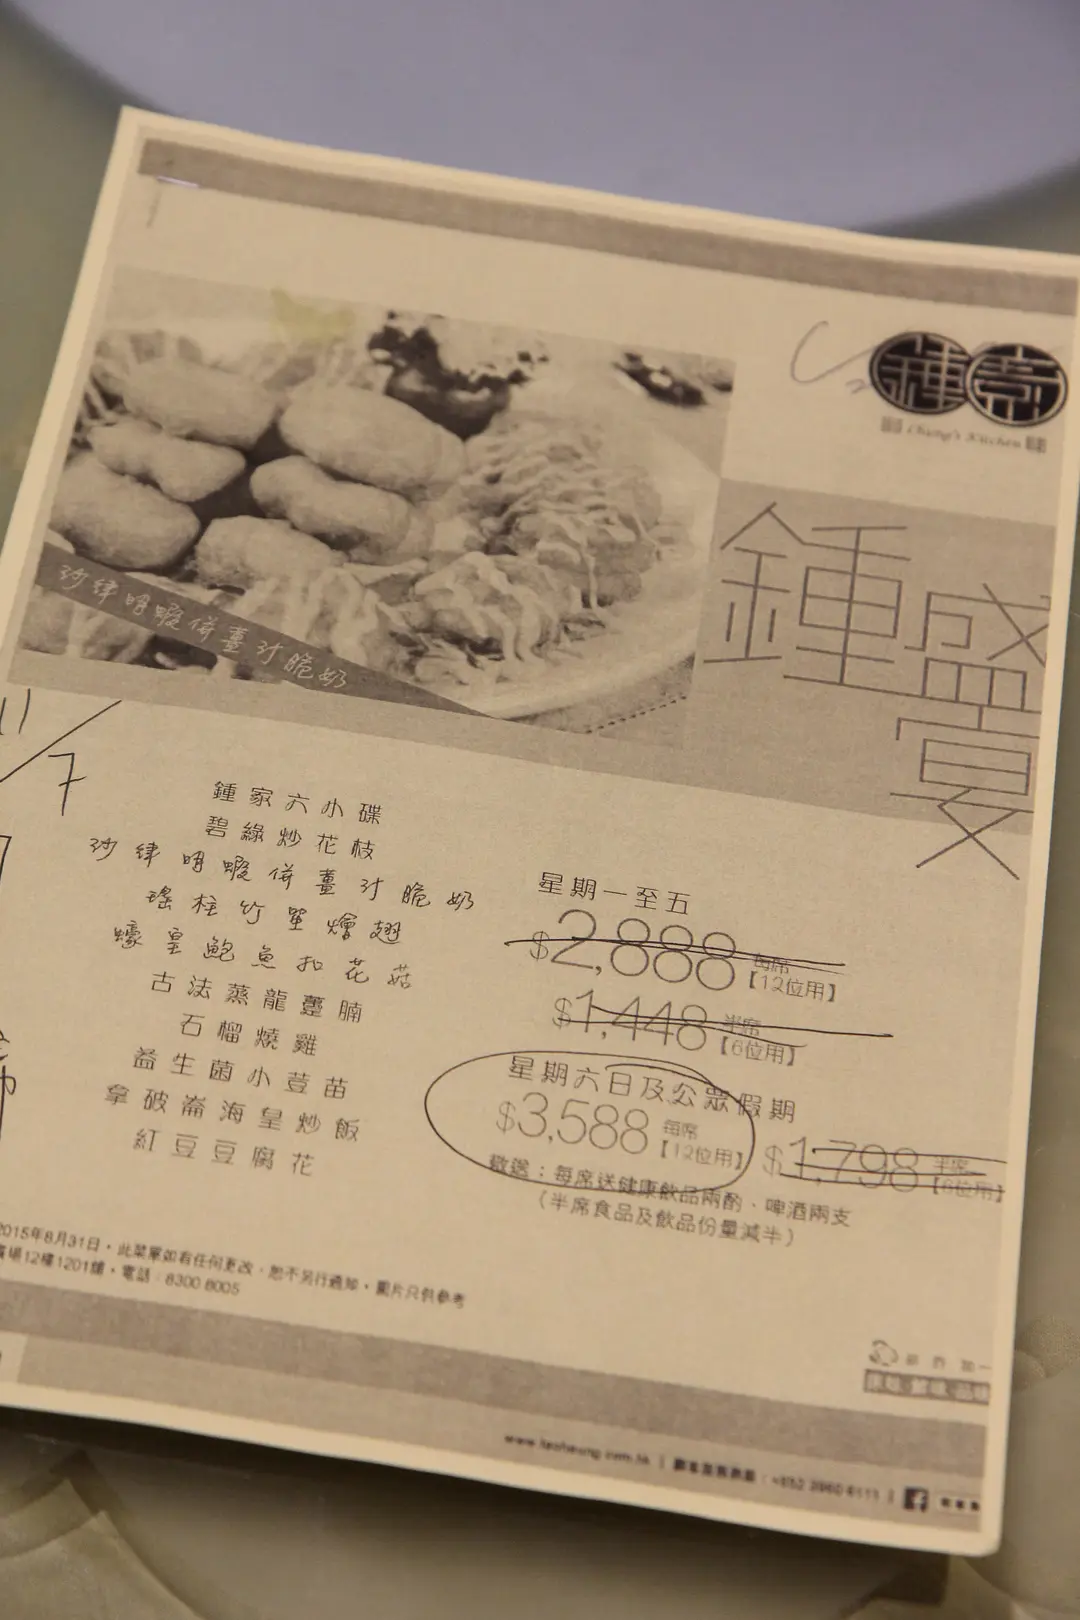 鍾菜
Chung's Kitchen
鍾
盛
宴
沙律明蝦併薑汁脆奶
11/7
鍾家六小碟
碧綠炒花枝
沙律明蝦併薑汁脆奶
瑤柱竹笙燴翅
蠔皇鮑魚扣花菇
古法蒸龍躉腩
石榴燒雞
益生菌小荳苗
拿破崙海皇炒飯
紅豆豆腐花
星期一至五
$2,888 每席【12位用】
$1,448 半席【6位用】
星期六日及公眾假期
$3,588 每席【12位用】
$1,798 半席【6位用】
敬送：每席送健康飲品兩酌、啤酒兩支
（半席食品及飲品份量減半）
2015年8月31日，此菜單如有任何更改，恕不另行通知，圖片只供參考
廣場12樓1201舖，電話：8300 8005
www.taoheung.com.hk | 顧客服務熱線：+852 8300 8111 |